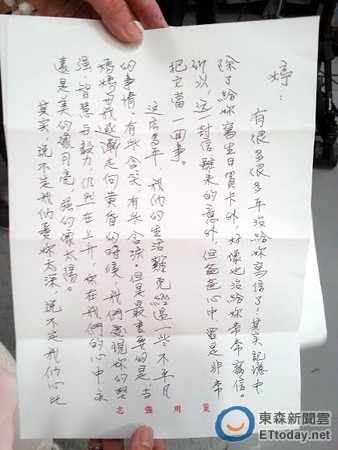 婷：
有很多很多年沒給妳寫信了！其實記憶中
除了給妳寫生日賀卡外，好像也沒給妳常常寫信。
所以，這一封信雖來的意外，但爸爸心中還是非常
把它當一回事。
這麼多年，我們的生活難免經過一些不平凡
的事情，有些含笑，有些含淚，但是最重要的是，當
媽媽與我逐漸走向黃昏的時候，我們發現妳的堅
強、智慧与毅力，仍然在上升，妳在我們的心中永
遠是美的像月亮，強的像太陽。
其實，說不定我們愛妳太深，說不定我們心比
志強用箋
東森新聞雲
ETtoday.net